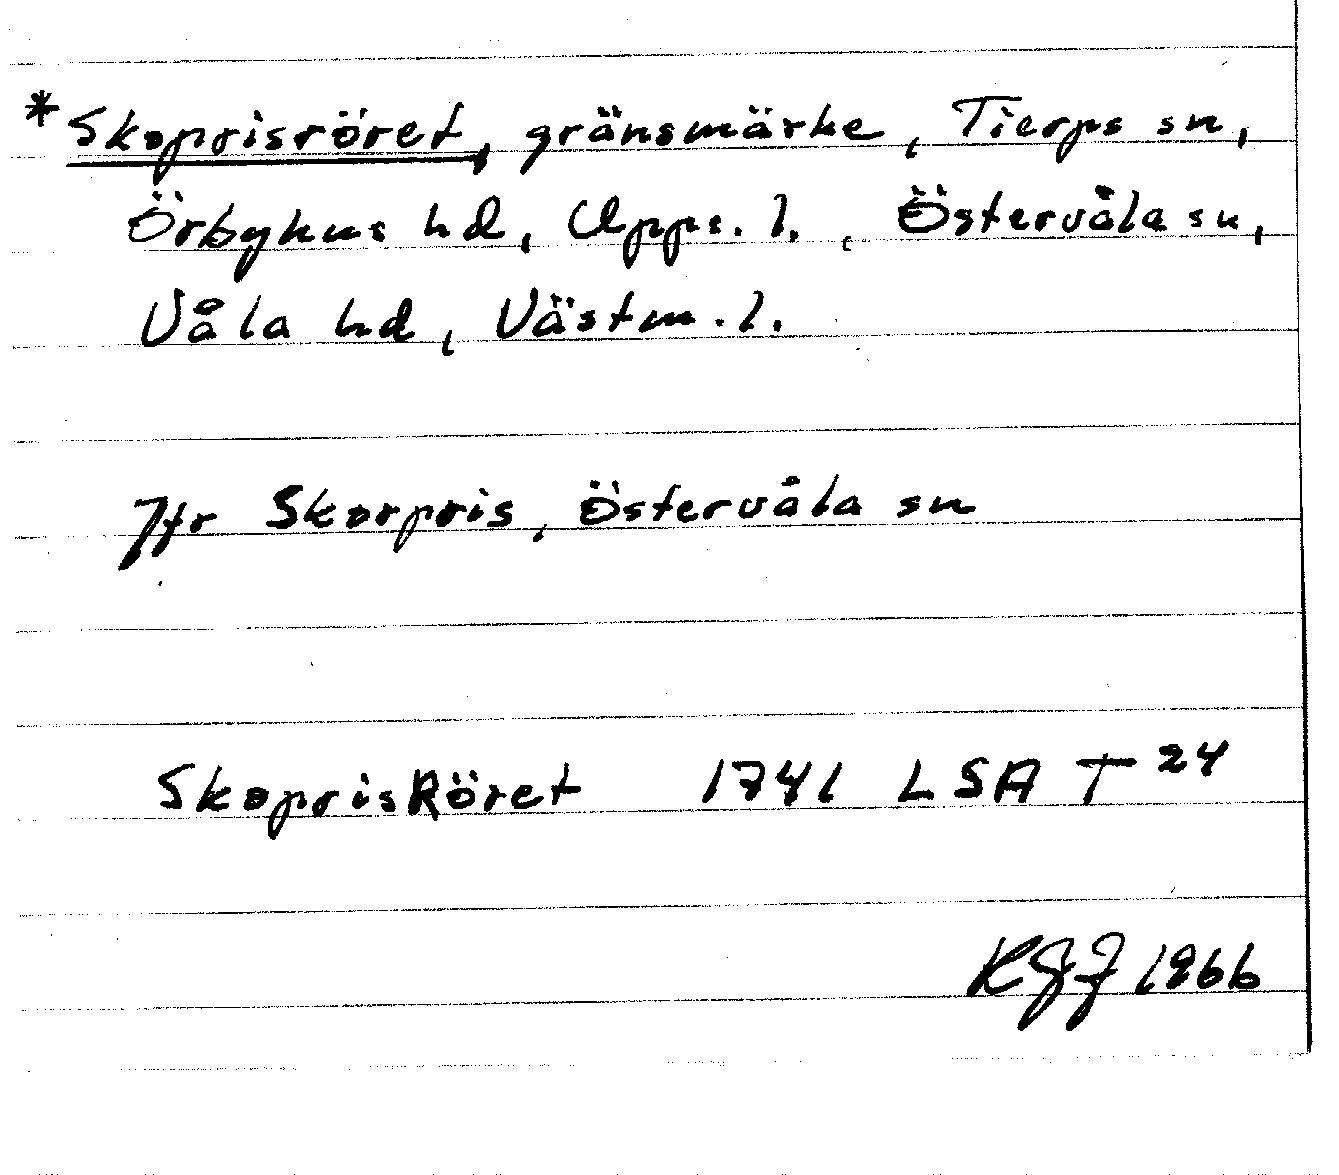 *Skoprisröret, gränsmärke, Tierps sn,
Örbyhus hd, Upps. l., Östervåla sn,
Våla hd, Västm. l.
Jfr Skorpris, Östervåla sn
SkoprisRöret 1741 LSA T 24
KGJ 1966